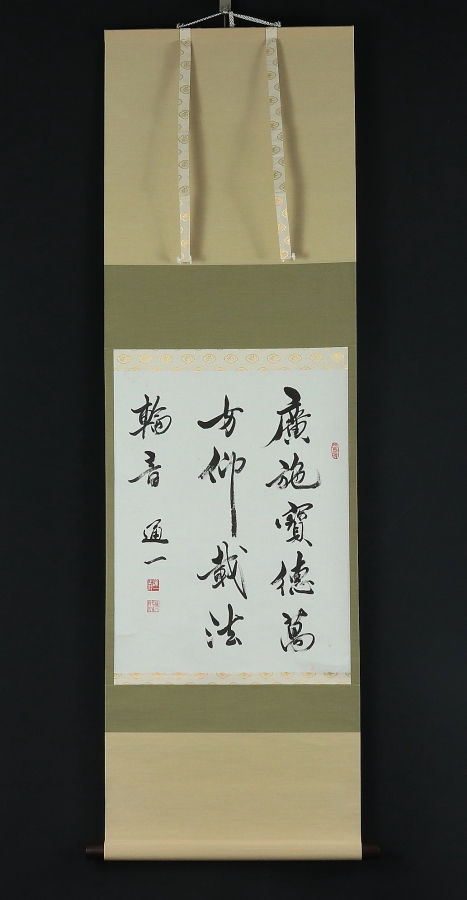 廣施寶德萬
方仰載法
輪音 通一